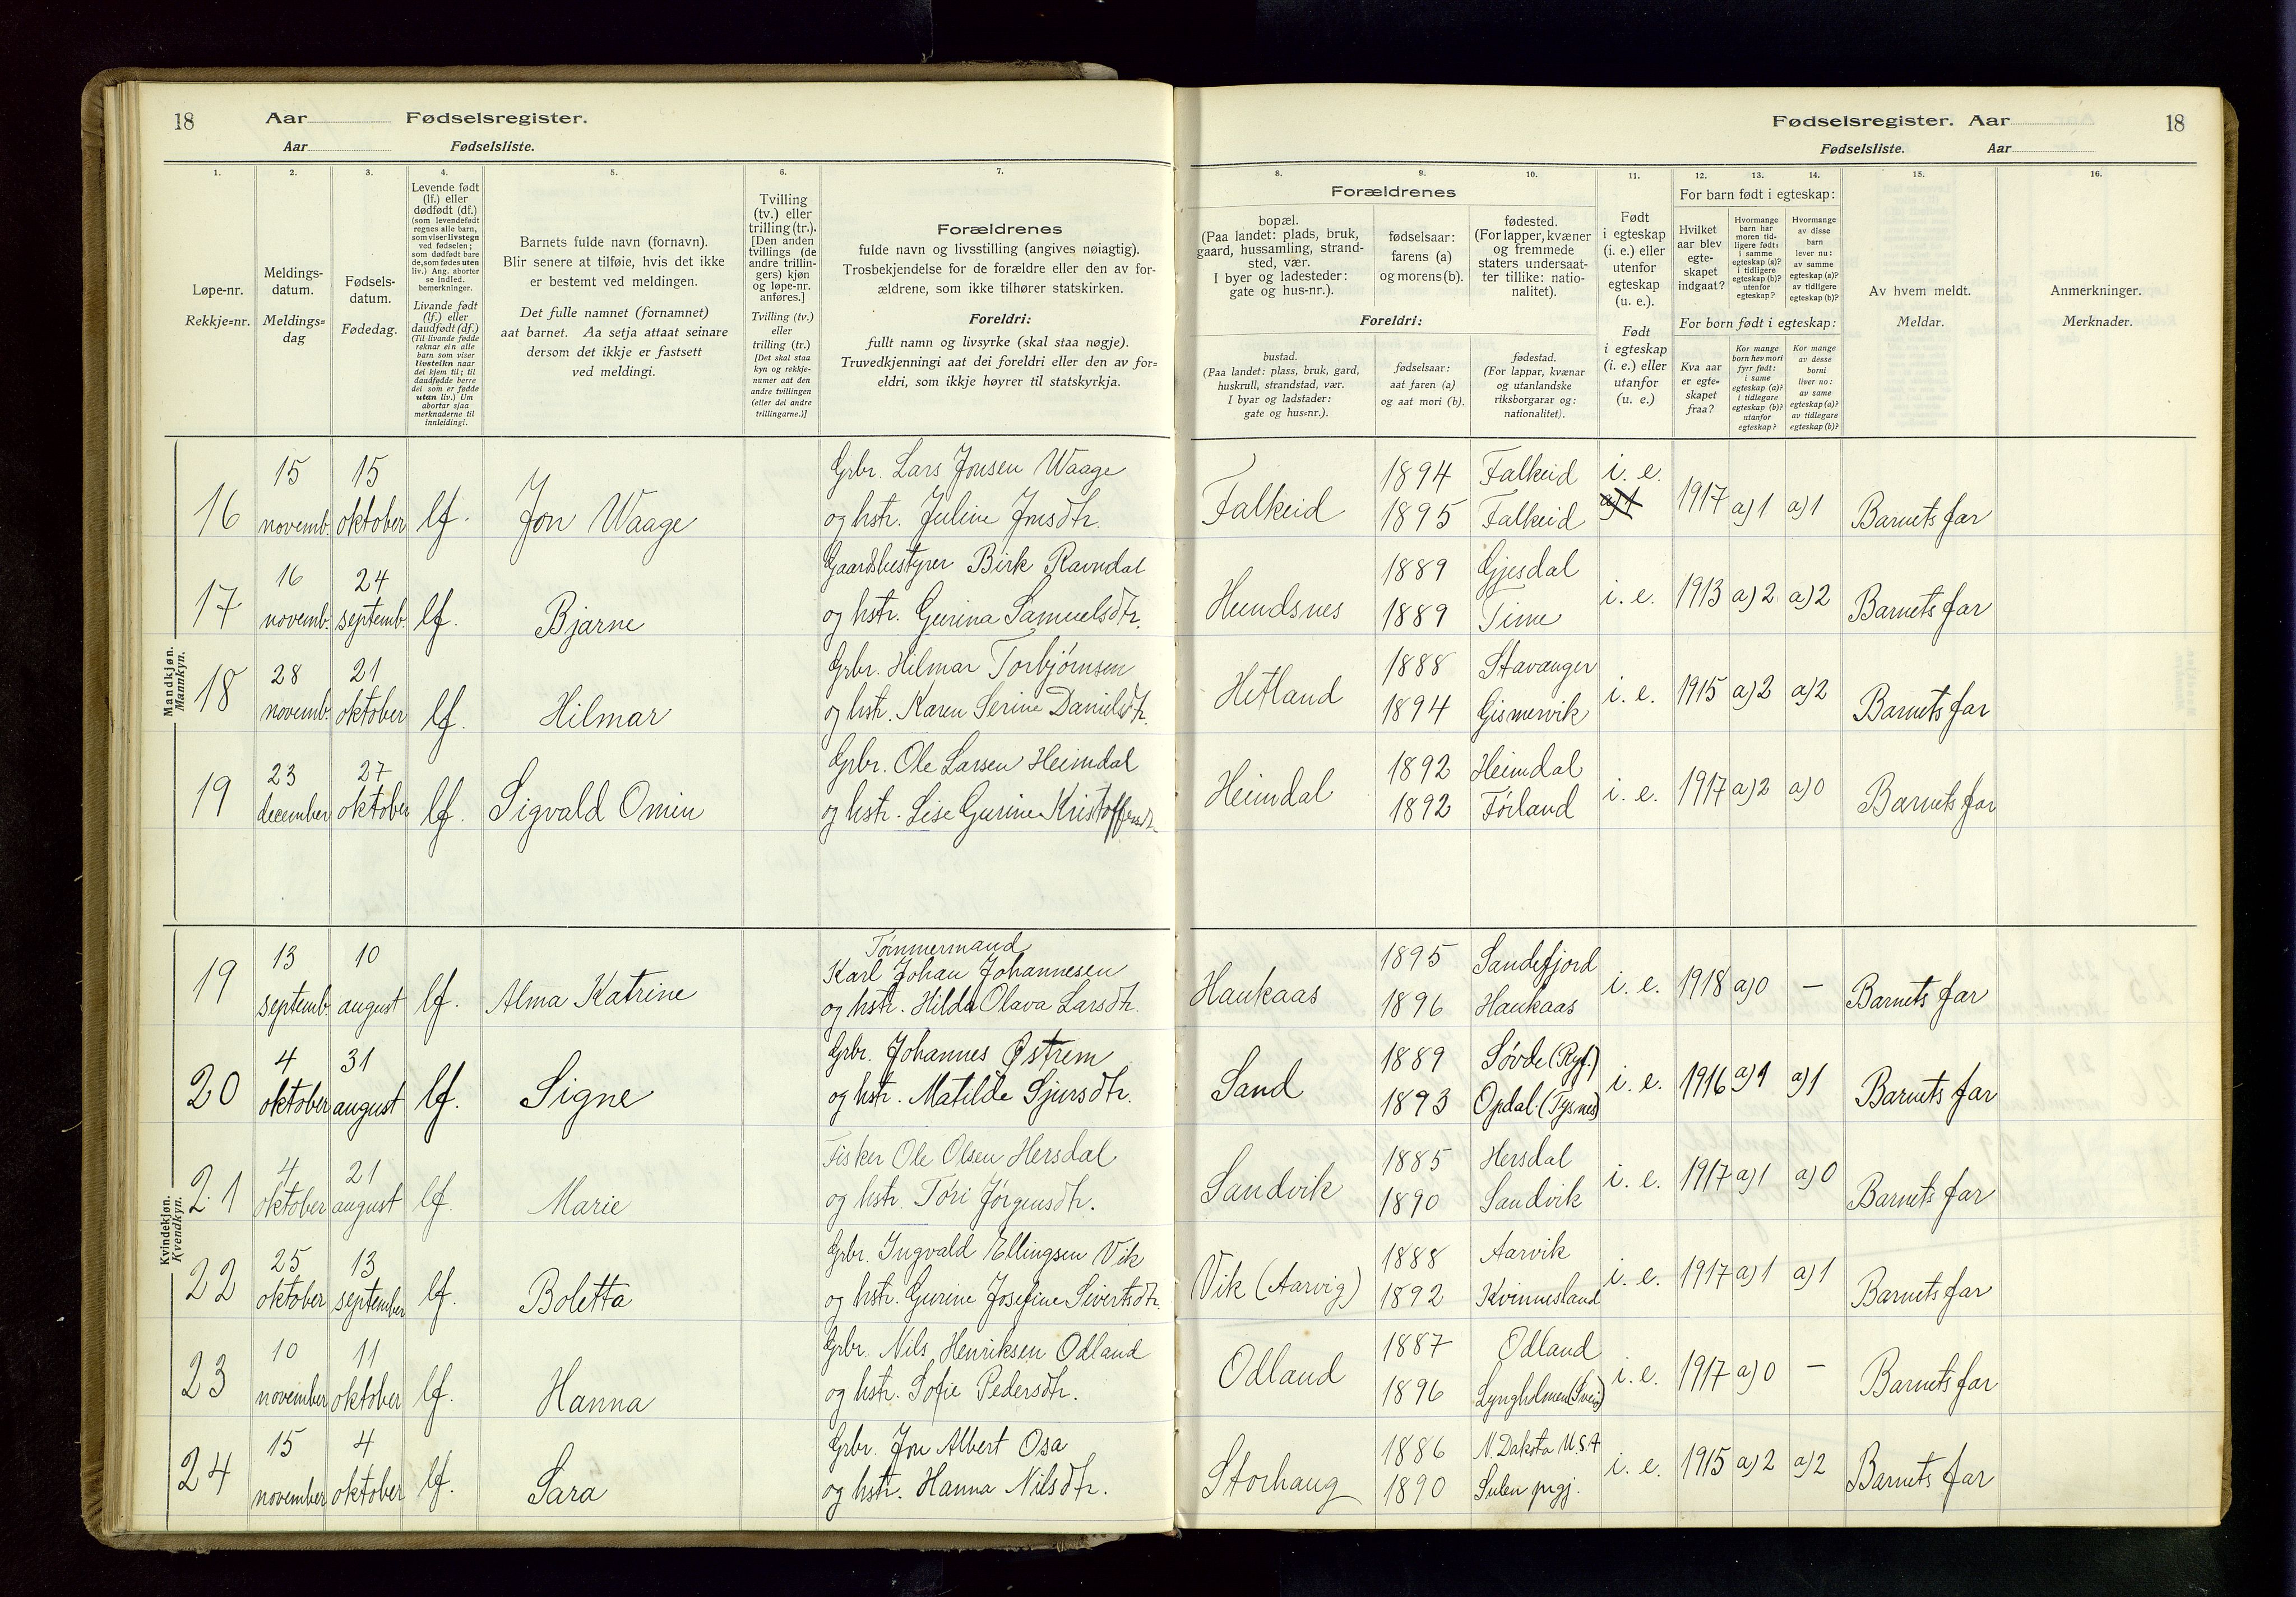 18 Aar Fødselsregister.
Aar Fødselsliste.
Fødselsregister. Aar 18
Fødselsliste. Aar
1. 2. 3. 4. 5. 6. 7.
Løpe-nr.
Rekkje=nr.
Meldings-
datum.
Meldings=
dag
Fødsels-
datum.
Fødedag.
Levende født
(lf.) eller
dødfødt (df.)
(som levendefødt
regnes alle barn,
som viser livstegn
ved fødselen;
som dødfødt bare
de, som fødes uten
liv.) Ang. aborter
se indled.
bemerkninger.
Livande født
(lf.) eller
daudfødt (df.)
(Til livande fødde
reknar ein alle
barn som viser
livsteikn naar
dei kjem til; til
daudfødde berre
dei som er fødde
utan liv.) Um
abortar sjaa
merknaderne til
innleidingi.
Barnets fulde navn (fornavn).
Blir senere at tilføie, hvis det ikke
er bestemt ved meldingen.
Det fulle namnet (fornamnet)
aat barnet. Aa setja attaat seinare
dersom det ikkje er fastsett
ved meldingi.
Tvilling
(tv.) eller
trilling (tr.).
[Den anden
tvillings (de
andre trillin-
gers) kjøn
og løpe-nr.
anføres.]
Tvilling (tv.)
eller
trilling (tr.)
[Det skal staa
kyn og rekkje-
numer aat den
andre tvillingen
(eller dei andre
trillingarne.)]
Forældrenes
fulde navn og livsstilling (angives nøiagtig).
Trosbekjendelse for de forældre eller den av for-
ældrene, som ikke tilhører statskirken.
Foreldri:
fullt namn og livsyrke (skal staa nøgje).
Truvedkjenningi aat dei foreldri eller den av for=
eldri, som ikkje høyrer til statskyrkja.
8. 9. 10. 11. 12. 13. 14. 15. 16.
Forældrenes
bopæl.
(Paa landet: plads, bruk,
gaard, hussamling, strand-
sted, vær.
I byer og ladesteder:
gate og hus-nr.).
fødselsaar:
farens (a)
og morens (b).
fødested.
(For lapper, kvæner
og fremmede
staters undersaat-
ter tillike: natio-
nalitet).
Foreldri:
bustad.
(Paa landet: plass, bruk, gard,
huskrull, strandstad, vær.
I byar og ladstader:
gate og hus=nr.).
fødselsaar:
aat faren (a)
og aat mori (b).
fødestad.
(For lappar, kvænar
og utanlandske
riksborgarar og:
nationalitet).
Født
i egteskap
(i. e.) eller
utenfor
egteskap
(u. e.).
Født
i egteskap
(i. e.) eller
utanfor
(u. e.)
For barn født i egteskap:
Hvilket
aar blev
egte-
skapet
indgaat?
Hvormange
barn har
moren tid-
ligere født:
i samme
egteskap (a)?
i tidligere
egteskap (b)?
utenfor
egteskap?
Hvormange
av disse
barn
lever nu:
av samme
egteskap (a)?
av tidligere
egteskap (b)?
For born født i egteskap:
Kva aar
er egte=
skapet
fraa?
Kor mange
born hev mori
fyrr født:
i same
egteskap (a)?
i tidlegare
egteskap (b)?
utanfor
egteskap?
Kor mange
av desse
borni
liver no:
av same
egteskap (a)?
av tidlegare
egteskap (b)?
Av hvem meldt.
Meldar.
Anmerkninger.
Merknader.
Mandkjøn.
Mannkyn.
16 15 novemb. 15 oktober lf. Jon Waage Grbr. Lars Jonsen Waage
og hstr. Juline Jonsdtr.
Falkeid 1894 Falkeid i. e. 1917 a)1 a)1 Barnets far
1895 Falkeid a)1
17 16 novemb. 24 septemb. lf. Bjarne Gaardsbestyrer Birk Ravndal
og hstr. Gurina Samuelsdtr.
Hundsnes 1889 Gjesdal i. e. 1913 a)2 a)2 Barnets far
1889 Time
18 28 novemb. 21 oktober lf. Hilmar Grbr. Hilmar Torbjørnsen
og hstr. Karen Serine Danielsdtr.
Hetland 1888 Stavanger i. e. 1915 a)2 a)2 Barnets far
1894 Gismervik
19 23 december 27 oktober lf. Sigvald Omin Grbr. Ole Larsen Heimdal
og hstr. Lise Gurine Kristoffersdtr.
Heimdal 1892 Heimdal i. e. 1917 a)2 a)0 Barnets far
1892 Førland
Kvindekjøn.
Kvendkyn.
19 13 septemb. 10 august lf. Alma Katrine Tømmermand
Karl Johan Johannesen
og hstr. Hilda Olava Larsdtr.
Haukaas 1895 Sandefjord i. e. 1918 a)0 – Barnets far
1896 Haukaas
20 4 oktober 31 august lf. Signe Grbr. Johannes Østrem
og hstr. Matilde Sjursdtr.
Sand 1889 Søvde (Ryf.) i. e. 1916 a)1 a)1 Barnets far
1893 Opdal (Tysnes)
21 4 oktober 21 august lf. Marie Fisker Ole Olsen Hersdal
og hstr. Tøri Jørgensdtr.
Sandvik 1885 Hersdal i. e. 1917 a)1 a)0 Barnets far
1890 Sandvik
22 25 oktober 13 september lf. Boletta Grbr. Ingvald Ellingsen Vik
og hstr. Gurine Josefine Sivertsdtr.
Vik (Aarvig) 1888 Aarvik i. e. 1917 a)1 a)1 Barnets far
1892 Kvinnesland
23 10 november 11 oktober lf. Hanna Grbr. Nils Henriksen Odland
og hstr. Sofie Pedersdtr.
Odland 1887 Odland i. e. 1917 a)0 – Barnets far
1896 Lyngholmen (Sveio)
24 15 november 4 oktober lf. Sara Grbr. Jon Albert Osa
og hstr. Hanna Nilsdtr.
Storhaug 1886 N. Dakota U.S.A i. e. 1915 a)2 a)2 Barnets far
1890 Sulen prgj.